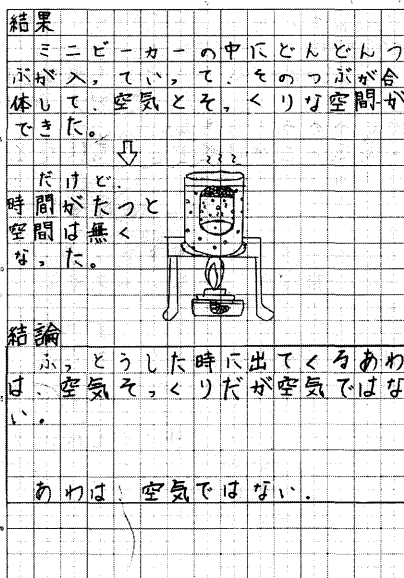 結果
ミニビーカーの中にどんどんつ
ぶが入っていって、そのつぶが合
体して、空気とそっくりな空間が
できた。
⇩
だけど、
時間がたつと
空間は無く
なった。
結論
ふっとうした時に出てくるあわ
は、空気そっくりだが空気ではな
い。
あわは、空気ではない。